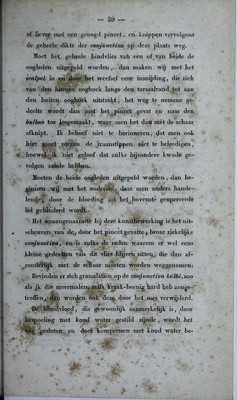 — 39 —
of liever met een gooegd pincet, en knippen vervolgens
de geheele dikte der conjunctiva op deze plaats weg.
Moet het geheele bindvlies van een of van beide de
oogleden uitgepeld worden, dan maken wij met het
scalpel in en door het weefsel eene insnijding, die zich
van den binnen ooghoek langs den tarsaalrand tot aan
den buiten ooghoek uitstrekt; het weg te nemene ge-
deelte wordt dan met het pincet gevat en naar den
bulbus toe losgemaakt, waar men het dan met de schaar
afknipt. Ik behoef niet te herinneren, dat men ook
hier moet zorgen de traanstippen niet te beleedigen,
hoewel ik niet geloof dat zulks bijzondere kwade ge-
volgen zoude hebben.
Moeten de beide oogleden uitgepeld worden, dan be-
ginnen wij met het onderste, daar men anders hande-
lende, door de bloeding uit het bovenste geopereerde
lid gehinderd wordt.
Het onaangenaamste bij deze kunstbewerking is het uit-
scheuren van de, door het pincet gevatte, broze ziekelijke
conjunctiva, en is zulks de reden waarom er wel eens
kleine gedeelten van dit vlies blijven zitten, die dan af-
zonderlijk met de schaar moeten worden weggenomen.
Bevinden er zich granulatiën op de conjunctiva bulbi, zoo
als ik die meermalen, zelfs kraak-beenig hard heb aange-
troffen, dan worden ook deze door het mes verwijderd.
De bloedvloed, die gewoonlijk aanmerkelijk is, door
bespoeling met koud water gestild zijnde, wordt het
oog gesloten en door kompressen met koud water be-